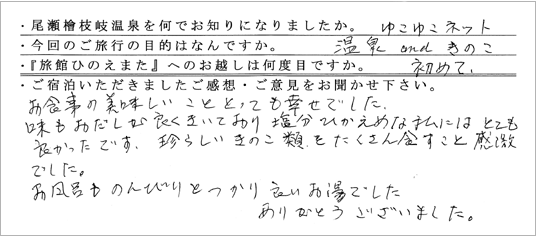 ・尾瀬檜枝岐温泉を何でお知りになりましたか。 ゆこゆこネット
・今回のご旅行の目的はなんですか。 温泉 and きのこ
・『旅館ひのえまた』へのお越しは何度目ですか。 初めて、
・ご宿泊いただきましたご感想・ご意見をお聞かせ下さい。
お食事の美味しいこととっても幸せでした。
味もおだしが良くきいており塩分ひかえめな私にはとても
良かったです。珍らしいきのこ類をたくさん食すこと感激
でした。
お風呂ものんびりとつかり良いお湯でした
ありがとうございました。